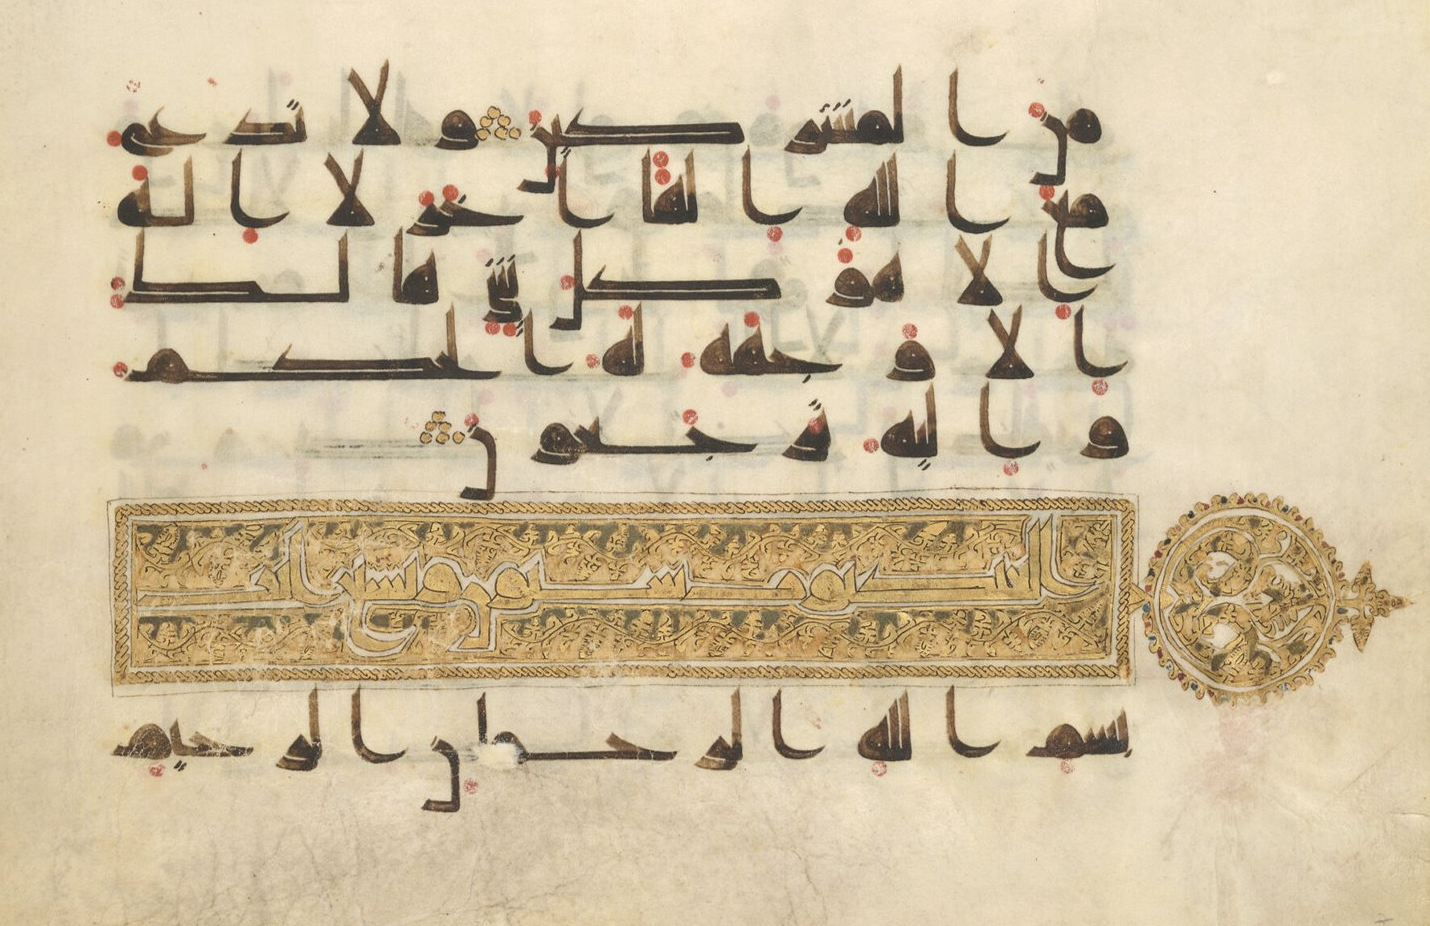 من المشركين ولا تدع
مع الله الها اخر لا اله
الا هو كل شي هالك
الا وجهه له الحكم
واليه ترجعون
العنكبوت ستون وتسع ايات
بسم الله الرحمن الرحيم